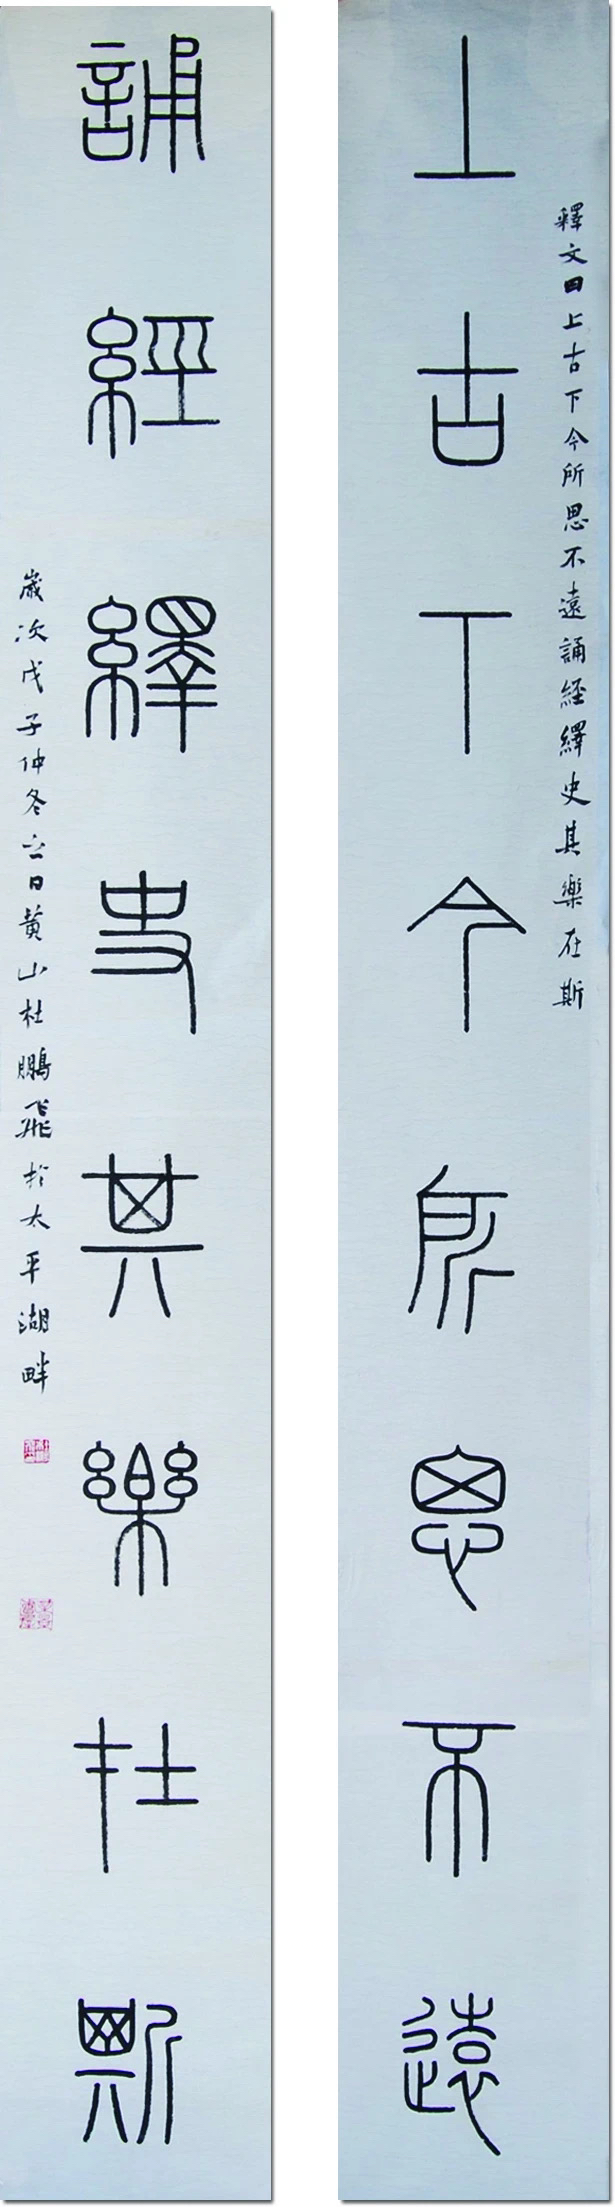 釋文曰上古下今所思不遠誦經繹史其樂在斯
上古下今所思不遠
誦經繹史其樂在斯
歲次戊子仲冬六日黃山杜鵬飛於太平湖畔